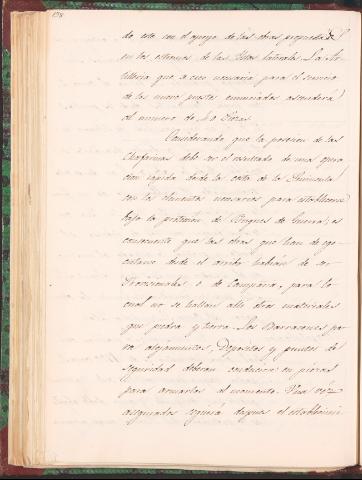 158
do este con el apoyo de las obras propuestas
en los estremos de las Islas laterales. La Ar-
tilleria que a creo necesaria para el servicio
de los nueve puestos enunciados ascenderá
al numero de 40 Piezas.
Considerando que la posesion de las
Chafarinas debe ser el resultado de una opera-
cion rápida desde la costa de la Peninsula
con los elementos necesarios para establecerse
bajo la proteccion de Buques de Guerra, es
consecuente que las obras que han de eje-
cutarse desde el arribo habrán de ser
Provisionales o de Campaña, para lo
cual no se hallan alli otros materiales
que piedra y tierra. Los Barracones pa-
ra alojamientos, Depositos y puestos de
seguridad deberan conducirse en piezas
para armarlos al momento. Una véz
asegurados seguirá despues el establecimi-